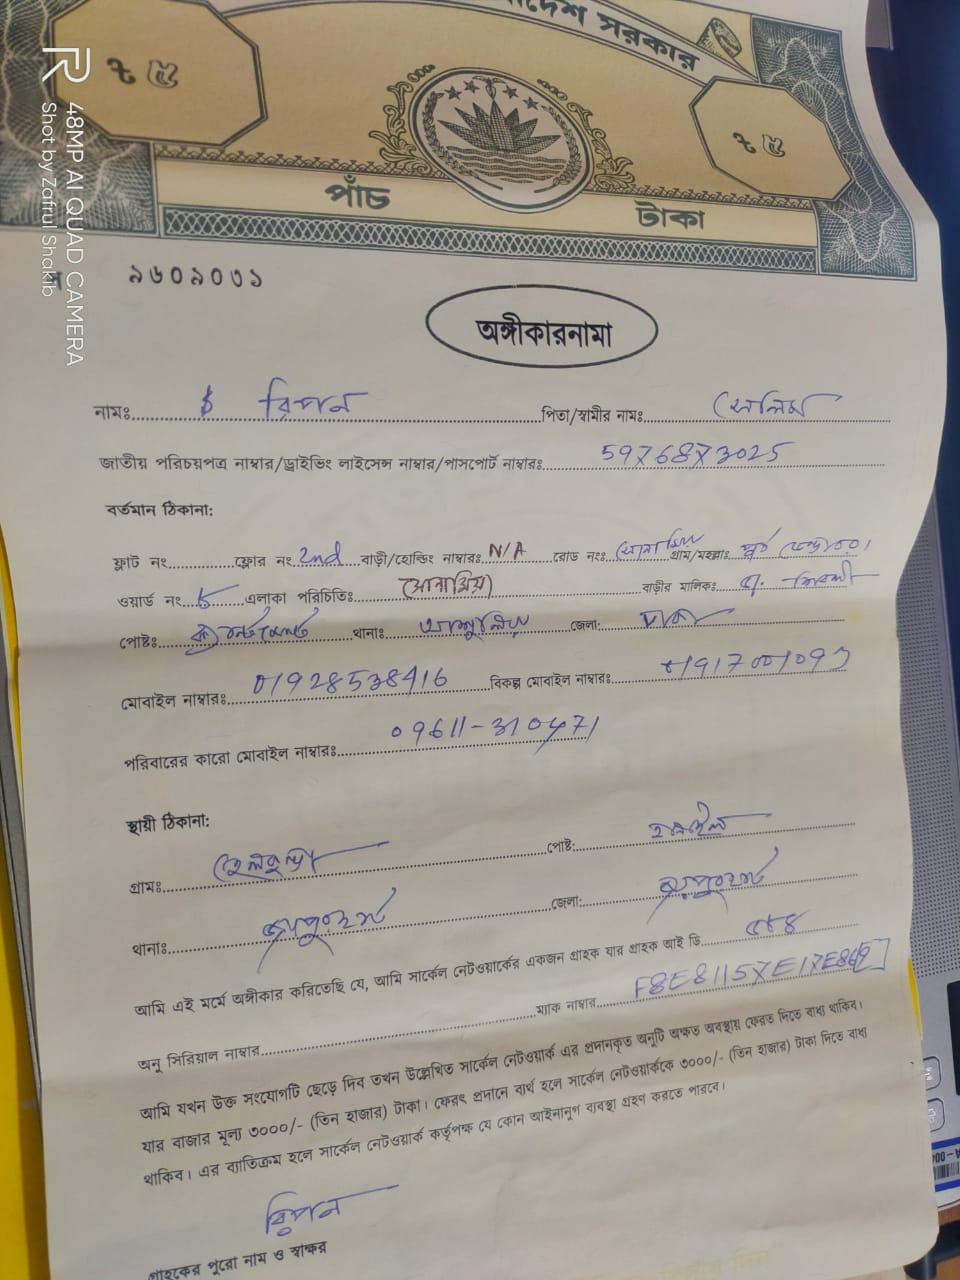 বাংলাদেশ সরকার
৳ ৫ ৳ ৫
পাঁচ টাকা
৯৬০৯০৩১
অঙ্গীকারনামা
নামঃ রিপন পিতা/স্বামীর নামঃ সেলিম
জাতীয় পরিচয়পত্র নাম্বার/ড্রাইভিং লাইসেন্স নাম্বার/পাসপোর্ট নাম্বারঃ 5976873025
বর্তমান ঠিকানা:
ফ্লাট নং ফ্লোর নং 2nd বাড়ী/হোল্ডিং নাম্বারঃ N/A রোড নংঃ গ্রাম/মহল্লাঃ পূর্ব
ওয়ার্ড নং ৮ এলাকা পরিচিতিঃ বাড়ীর মালিকঃ
পোষ্টঃ থানাঃ আশুলিয়া জেলা: ঢাকা
মোবাইল নাম্বারঃ 01928538416 বিকল্প মোবাইল নাম্বারঃ
পরিবারের কারো মোবাইল নাম্বারঃ 09611-310471
স্থায়ী ঠিকানা:
গ্রামঃ পোষ্ট:
থানাঃ জেলা:
আমি এই মর্মে অঙ্গীকার করিতেছি যে, আমি সার্কেল নেটওয়ার্কের একজন গ্রাহক যার গ্রাহক আই ডি
অনু সিরিয়াল নাম্বার ম্যাক নাম্বার
আমি যখন উক্ত সংযোগটি ছেড়ে দিব তখন উল্লেখিত সার্কেল নেটওয়ার্ক এর প্রদানকৃত অনুটি অক্ষত অবস্থায় ফেরত দিতে বাধ্য থাকিব।
যার বাজার মূল্য ৩০০০/- (তিন হাজার) টাকা। ফেরৎ প্রদানে ব্যর্থ হলে সার্কেল নেটওয়ার্ককে ৩০০০/- (তিন হাজার) টাকা দিতে বাধ্য
থাকিব। এর ব্যাতিক্রম হলে সার্কেল নেটওয়ার্ক কর্তৃপক্ষ যে কোন আইনানুগ ব্যবস্থা গ্রহণ করতে পারবে।
রিপন
গ্রাহকের পুরো নাম ও স্বাক্ষর
48MP AI QUAD CAMERA
Shot by Zafrul Shakib